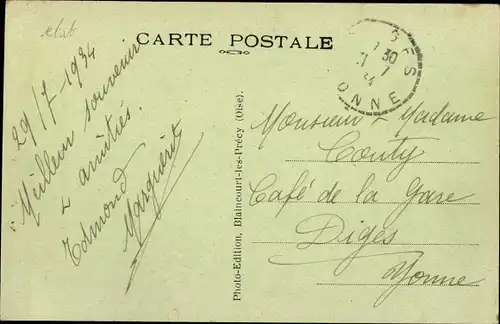 CARTE POSTALE
29/7-1934
Meilleur souvenir
& amitiés.
Edmond
Marguerit
Photo-Edition, Blaincourt-les-Précy (Oise).
GES
7 30
34
ONNE
Monsieur & Madame
Couty
Café de la Gare
Diges
Yonne